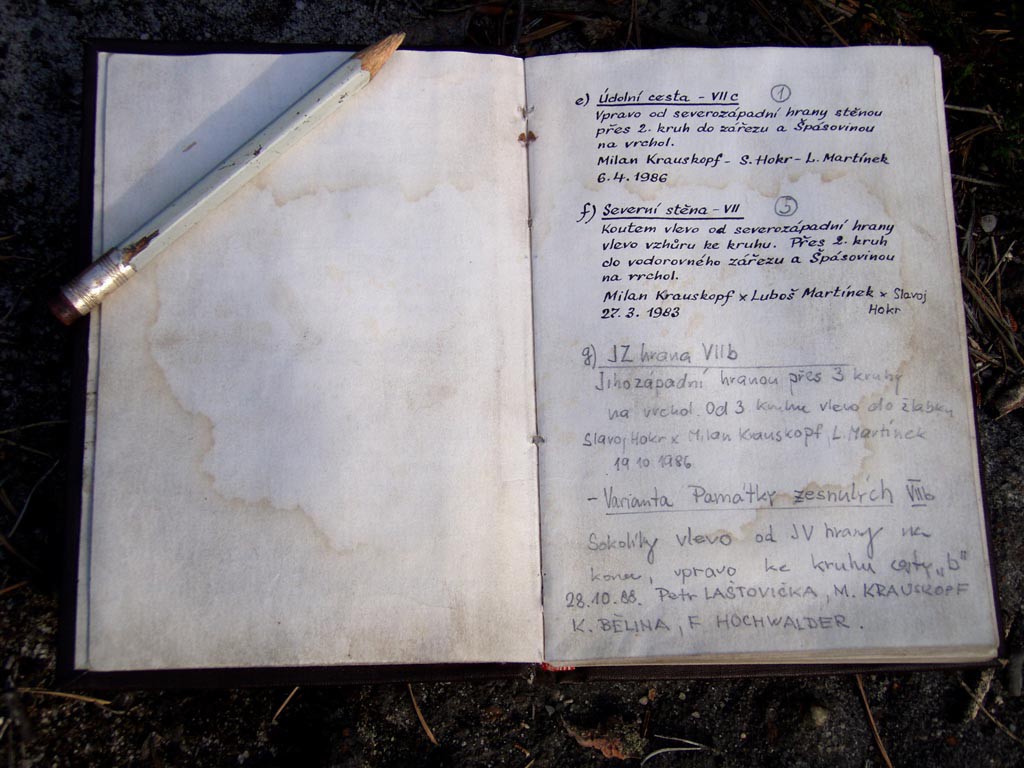 e) Údolní cesta - VIIc ①
Vpravo od severozápadní hrany stěnou
přes 2. kruh do zářezu a Špásovinou
na vrchol.
Milan Krauskopf - S. Hokr - L. Martínek
6.4. 1986
f) Severní stěna - VII ⑤
Koutem vlevo od severozápadní hrany
vlevo vzhůru ke kruhu. Přes 2. kruh
do vodorovného zářezu a Špásovinou
na vrchol.
Milan Krauskopf x Luboš Martínek x Slavoj
Hokr
27. 3. 1983
g) JZ hrana VIIb
Jihozápadní hranou přes 3 kruhy
na vrchol. Od 3 kruhu vlevo do žlabku
Slavoj Hokr x Milan Krauskopf, L. Martínek
19 10 1986
- Varianta Památky zesnulých VIIb
Sokolíky vlevo od JV hrany na
konec, vpravo ke kruhu cesty „b"
28.10.88. Petr LAŠTOVIČKA, M. KRAUSKOPF
K. BĚLINA, F HOCHWALDER.